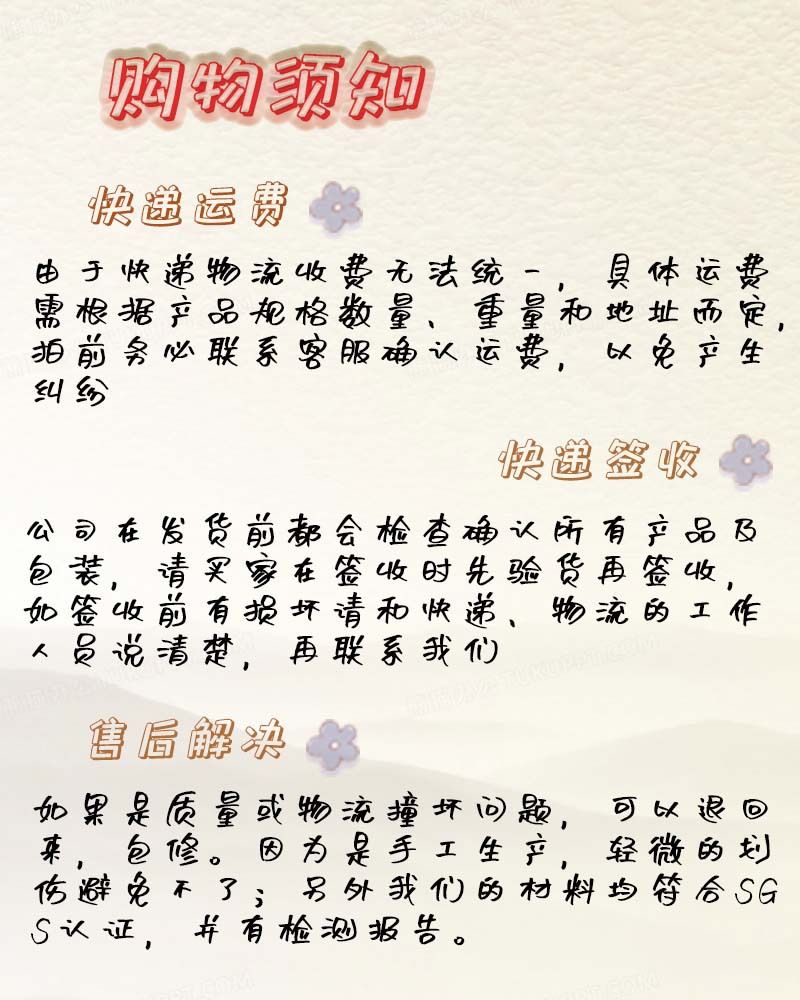 购物须知
快递运费
由于快递物流收费无法统一，具体运费
需根据产品规格数量、重量和地址而定，
拍前务必联系客服确认运费，以免产生
纠纷
快递签收
公司在发货前都会检查确认所有产品及
包装，请买家在签收时先验货再签收，
如签收前有损坏请和快递、物流的工作
人员说清楚，再联系我们
售后解决
如果是质量或物流撞坏问题，可以退回
来，包修。因为是手工生产，轻微的划
伤避免不了；另外我们的材料均符合SG
S认证，并有检测报告。